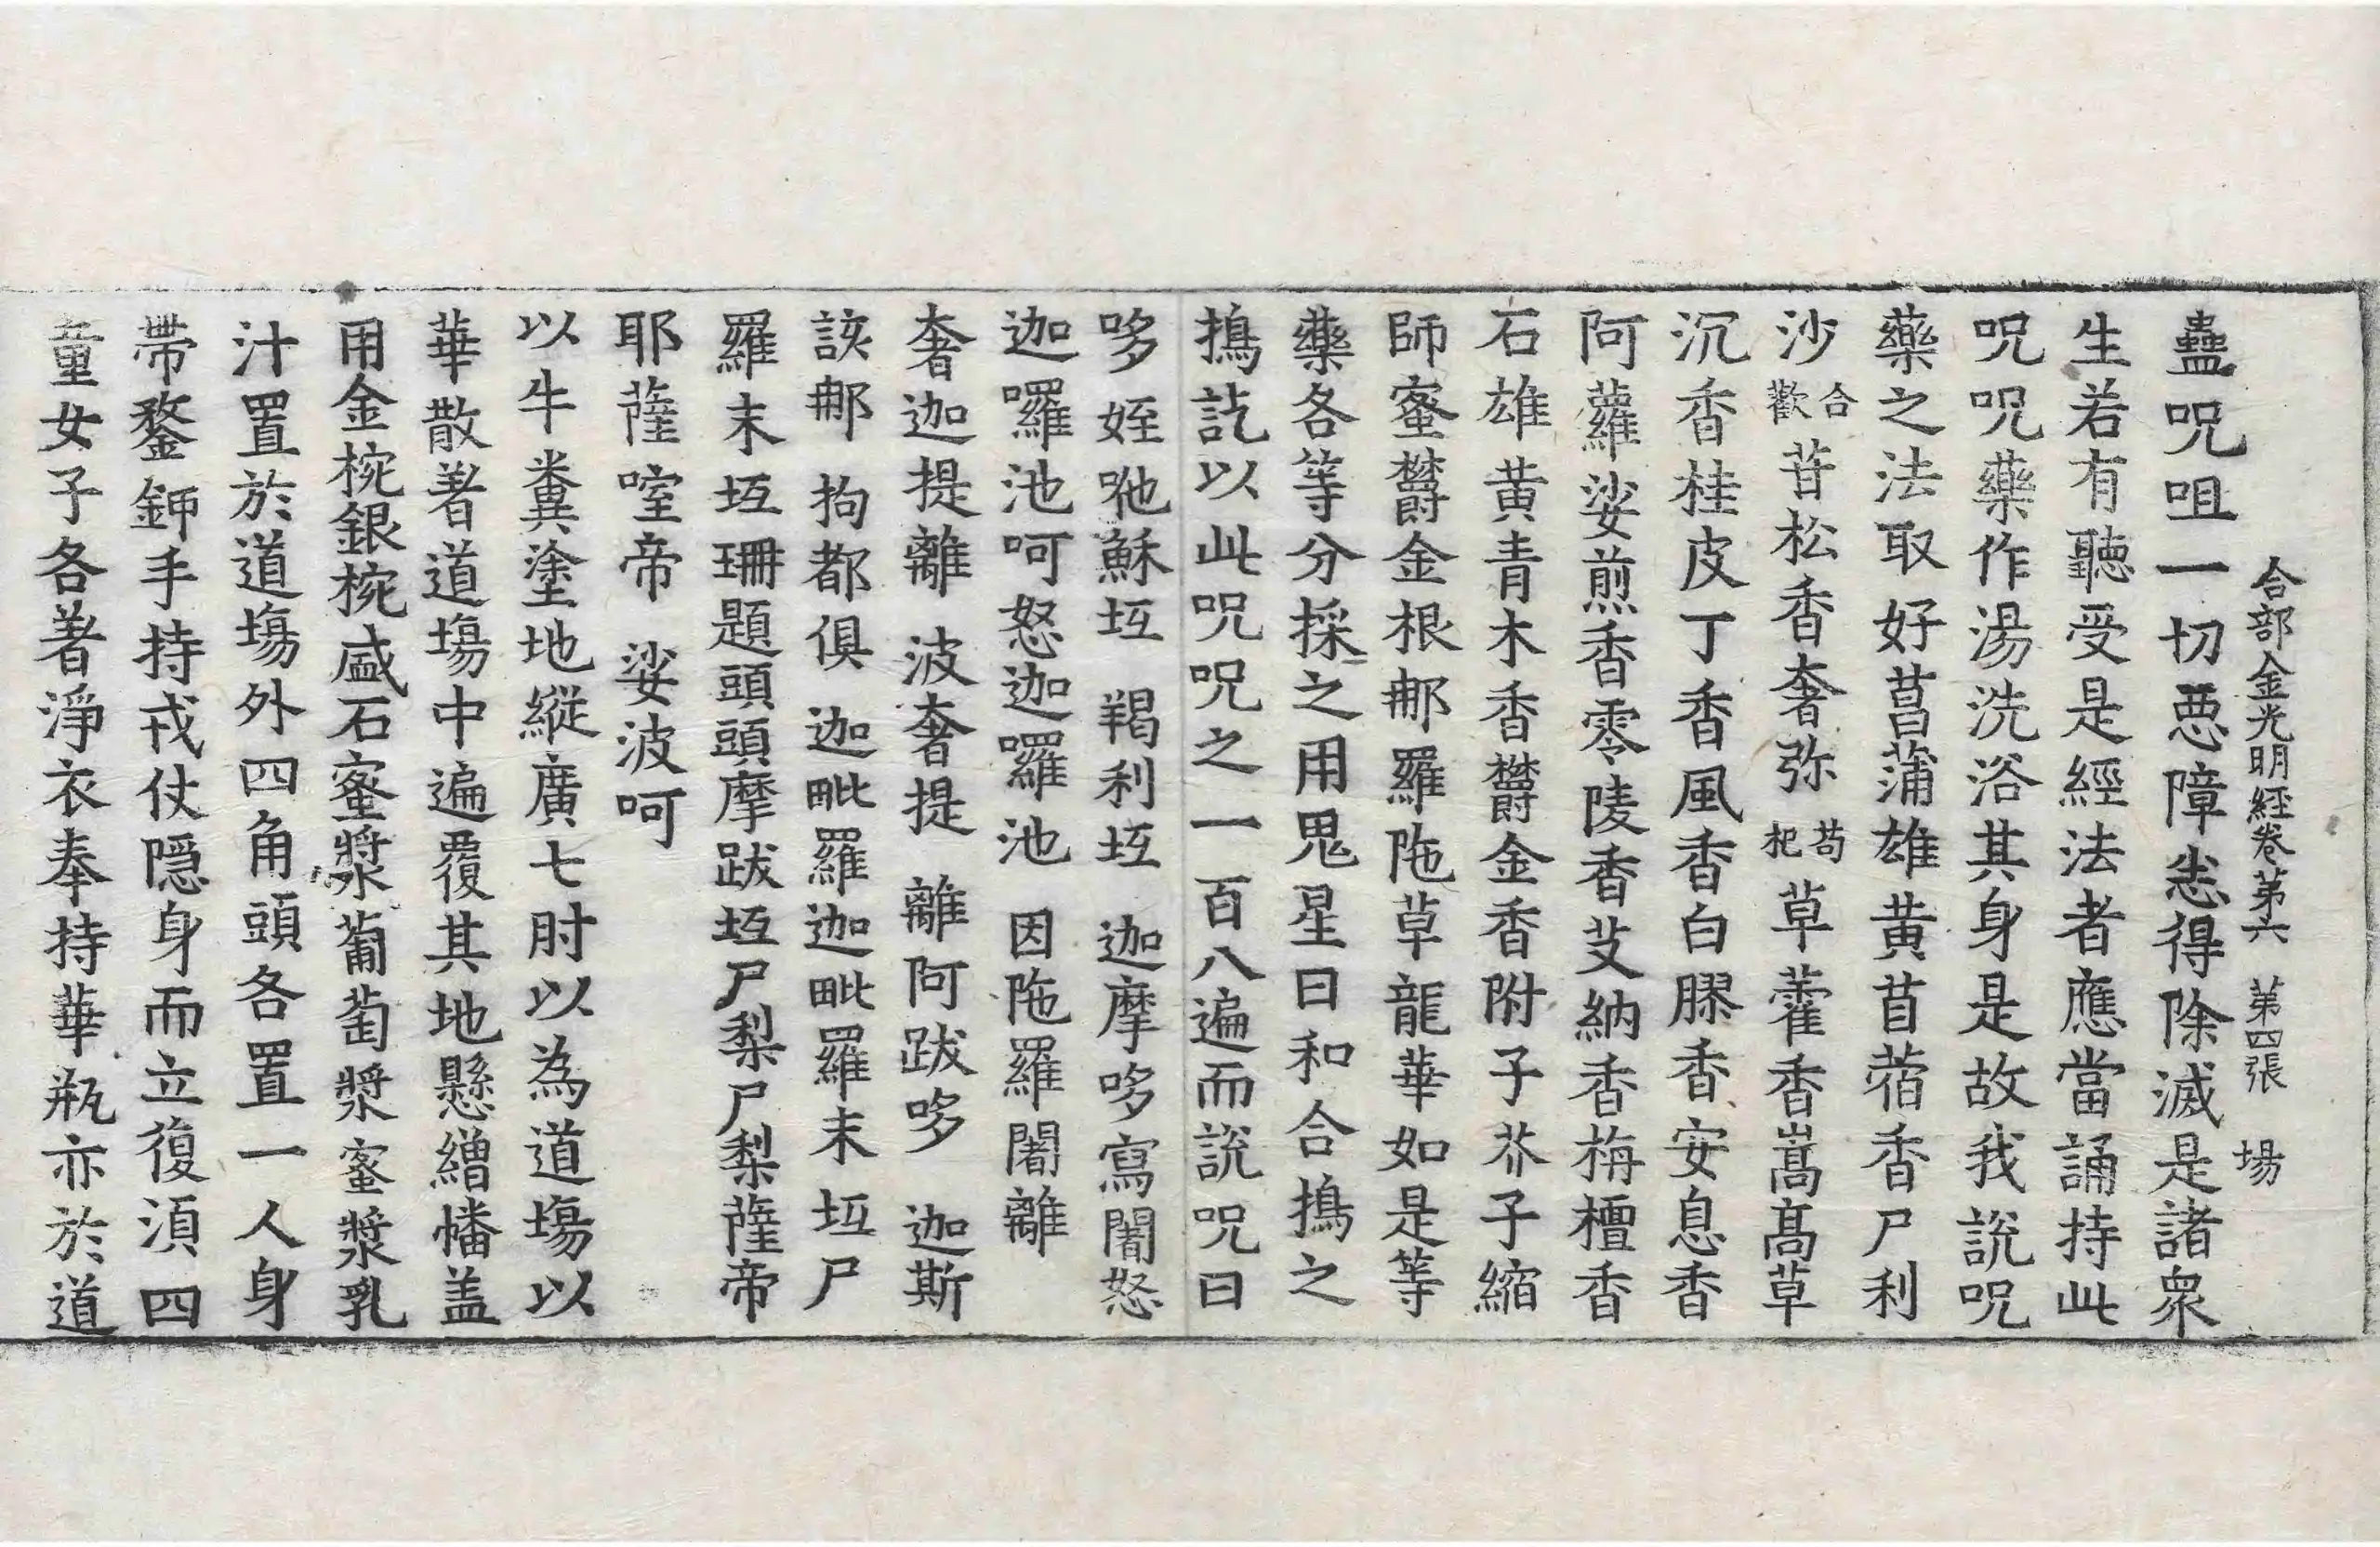 合部金光明經卷第六　第四張　場
蠱呪咀一切惡障悉得除滅是諸衆
生若有聽受是經法者應當誦持此
呪呪藥作湯洗浴其身是故我說呪
藥之法取好菖蒲雄黃苜蓿香尸利
沙合歡苷松香奢弥苟杞草藿香嵩高草
沉香桂皮丁香風香白膠香安息香
阿蘿娑煎香零陵香艾納香栴檀香
石雄黃青木香欝金香附子芥子縮
師蜜欝金根𨙻羅陁草龍華如是等
藥各等分採之用鬼星日和合擣之
擣訖以此呪呪之一百八遍而說呪曰
哆姪哋穌坘　羯利坘　迦摩哆寫闍怒
迦囉池呵怒迦囉池　因陁羅闍離
奢迦提離　波奢提　離阿跋哆　迦斯
該𨙻　拘都俱　迦毗羅迦毗羅末坘尸
羅末坘珊題頭頭摩跋坘尸梨尸梨薩帝
耶薩㗌帝　娑波呵
以牛糞塗地縱廣七肘以為道場以
華散著道場中遍覆其地懸繒幡盖
用金椀銀椀盛石蜜漿蒲萄漿蜜漿乳
汁置於道場外四角頭各置一人身
帶鍪鉀手持戎仗隱身而立復湏四
童女子各著淨衣奉持華瓶亦於道